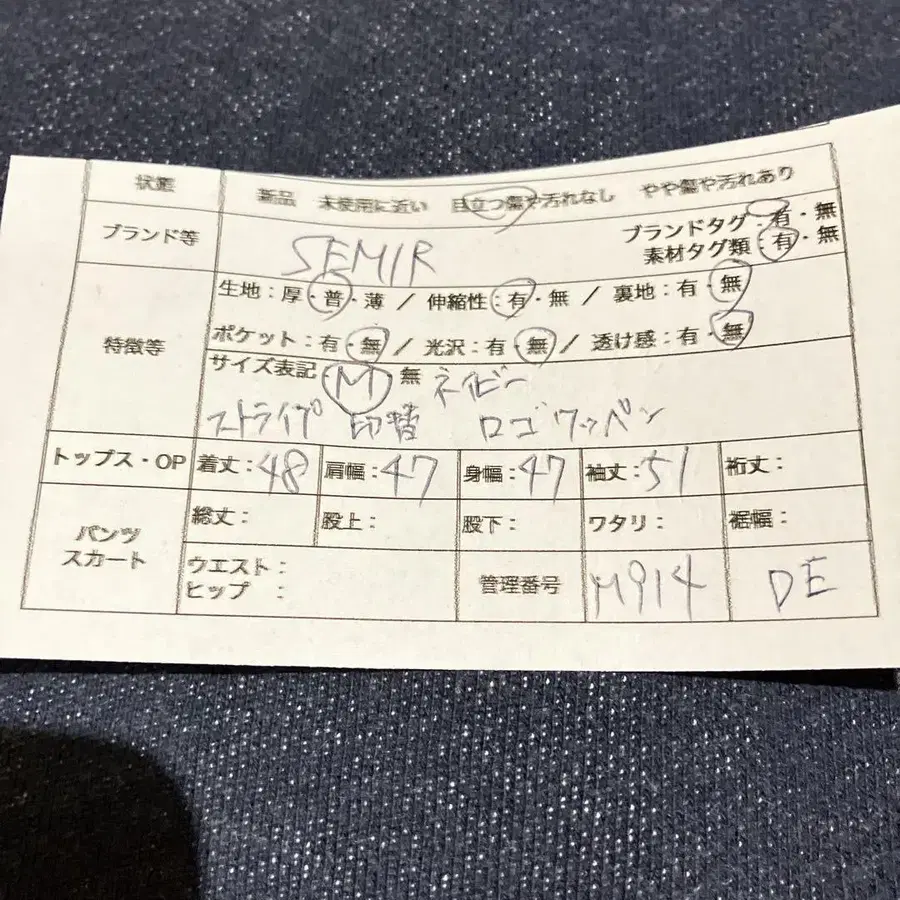 状態 新品 未使用に近い 目立つ傷や汚れなし やや傷や汚れあり
ブランド等 SEMIR ブランドタグ:有・無
素材タグ類:有・無
特徴等 生地:厚・普・薄 / 伸縮性:有・無 / 裏地:有・無
ポケット:有・無 / 光沢:有・無 / 透け感:有・無
サイズ表記 M 無 ネイビー
ストライプ 切替 ロゴワッペン
トップス・OP 着丈:48 肩幅:47 身幅:47 袖丈:51 裄丈:
パンツ スカート 総丈: 股上: 股下: ワタリ: 裾幅:
ウエスト:
ヒップ : 管理番号 M914 DE